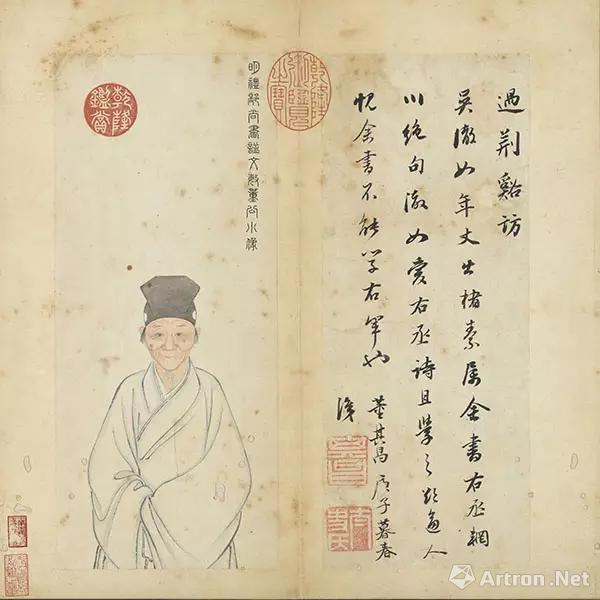 過荊谿訪
吳澈如年丈出楮素屬余書右丞輞
川絕句澈如愛右丞詩且學之逼人
余書不能學右軍也
董其昌 子暮春
乾隆御覽之寶
明禮部尚書諡文敏董公小像
乾隆鑑賞
Artron.Net